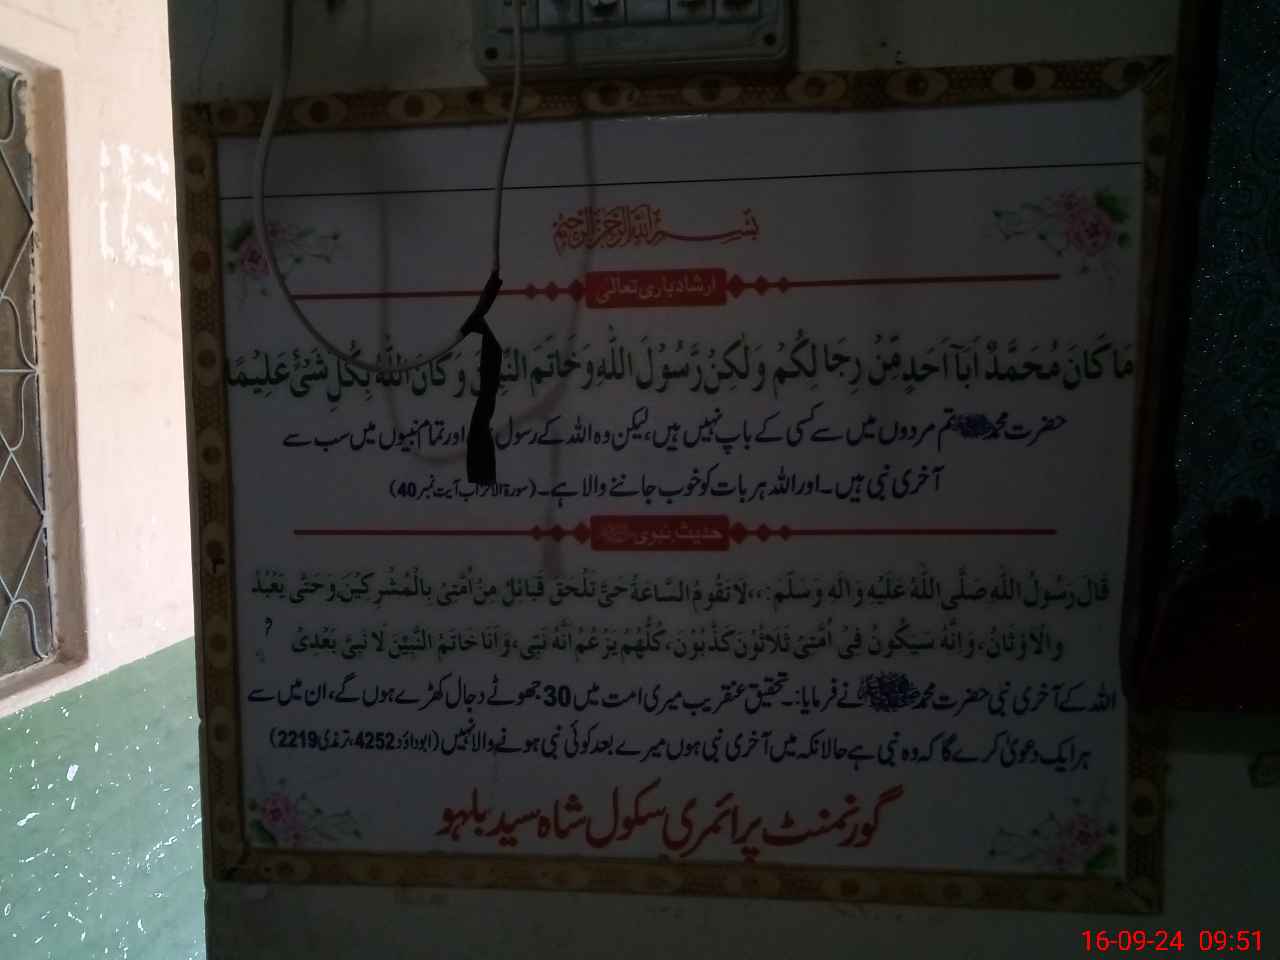 بسم اللہ الرحمن الرحیم
ارشاد باری تعالیٰ
مَا كَانَ مُحَمَّدٌ اَبَآ اَحَدٍ مِّنْ رِجَالِكُمْ وَلٰكِنْ رَّسُوْلَ اللّٰهِ وَخَاتَمَ النَّبِيّٖنَ وَكَانَ اللّٰهُ بِكُلِّ شَیْءٍ عَلِيْمًا
حضرت محمد ﷺ تم مردوں میں سے کسی کے باپ نہیں ہیں، لیکن وہ اللہ کے رسول اور تمام نبیوں میں سب سے
آخری نبی ہیں۔ اور اللہ ہر بات کو خوب جاننے والا ہے۔ (سورۃ الاحزاب آیت نمبر 40)
حدیث نبوی ﷺ
قَالَ رَسُوْلُ اللّٰهِ صَلَّى اللّٰهُ عَلَيْهِ وَاٰلِهٖ وَسَلَّمَ: ,,لَا تَقُوْمُ السَّاعَةُ حَتّٰى تَلْحَقَ قَبَائِلُ مِنْ اُمَّتِىْ بِالْمُشْرِكِيْنَ وَحَتّٰى يَعْبُدُ
والْاَوْثَانُ، وَاِنَّهٗ سَيَكُوْنُ فِىْ اُمَّتِىْ ثَلَاثُوْنَ كَذّٰبُوْنَ، كُلُّهُمْ يَزْعُمُ اَنَّهٗ نَبِى، وَاَنَا خَاتَمُ النَّبِيّٖنَ لَا نَبِىَّ بَعْدِىْ
اللہ کے آخری نبی حضرت محمد ﷺ نے فرمایا:۔ تحقیق عنقریب میری امت میں 30 جھوٹے دجال کھڑے ہوں گے، ان میں سے
ہر ایک دعویٰ کرے گا کہ وہ نبی ہے حالانکہ میں آخری نبی ہوں میرے بعد کوئی نبی ہونے والا نہیں (ابوداؤد 4252، ترمذی 2219)
گورنمنٹ پرائمری سکول شاہ سید بلہو
16-09-24 09:51